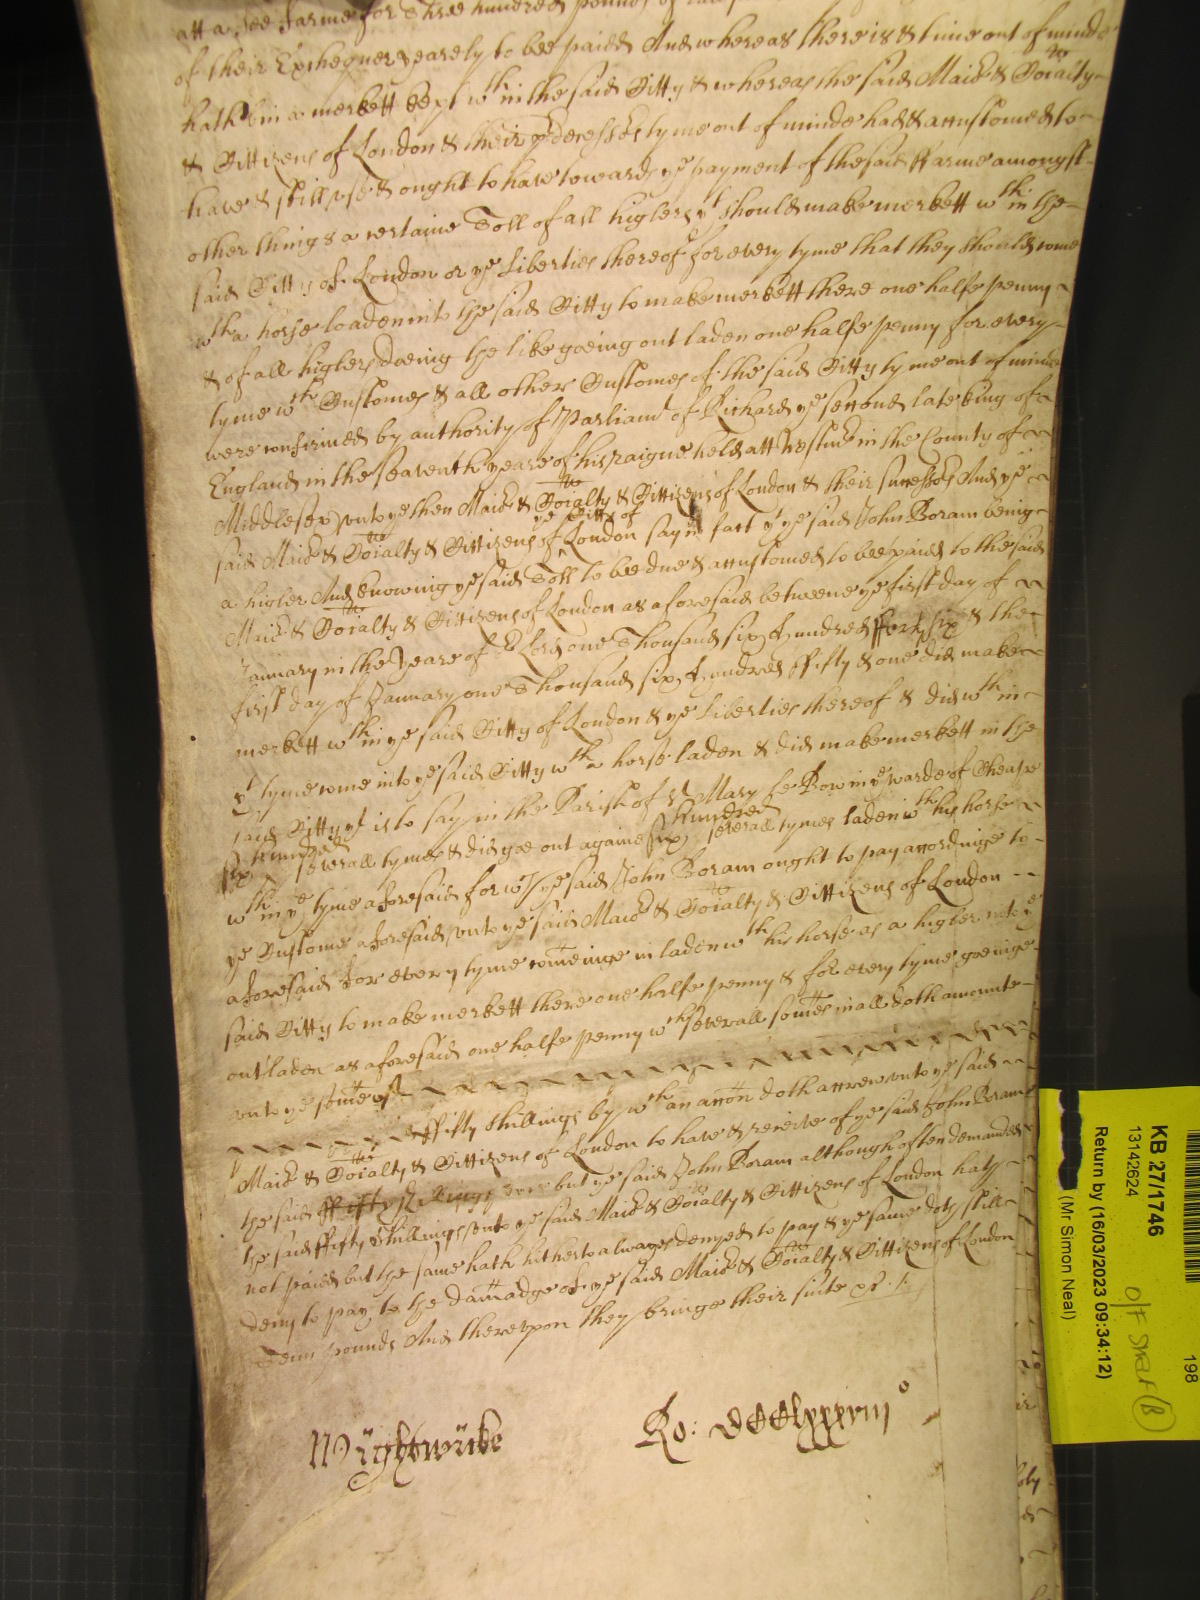 att a Fee Farme for Three hundred pounds of
of their Exchequer yearely to bee paide And whereas there is & time out of minde
hath bin a merkett kept wth in the said Citty & whereas the said Maior & Coialty
& Cittizens of London & their p'decessors tyme out of minde had & accustomed to
have & still use & ought to have towards ye payment of the said ffarme amongst
other things a certaine Toll of all higlers yt should make merkett wth in the
said Citty of London or ye Liberties thereof for every tyme that they should come
wth a horse loaden into the said Citty to make merkett there one halfe penny
& of all higlers doeing the like goeing out laden one halfe penny for every
tyme wch Customes & all other Customes of the said Citty tyme out of minde
were confirmed by authority of Parliamt of Richard ye second late king of
England in the seaventh yeare of his raigne held att Westmr in the County of
Middlesex vnto ye then Maior & Coialty & Cittizens of London & their successors And ye
said Maior & Coialty & Cittizens of ye Citty of London say in fact yt ye said John Boram being
a higler And knowing ye said Toll to bee due & accustomed to bee paied to the said
Maior & Coialty & Cittizens of London as aforesaid betweene ye first day of
January in the Yeare of or Lord one Thousand six hundred fforty six & the
first day of January one Thousand six hundred ffifty & one did make
merkett wth in ye said Citty of London & ye Liberties thereof & did wth in
yt tyme come into ye said Citty wth a horse laden & did make merkett in the
said Citty yt is to say in the Parish of St Mary le Bow in ye warde of Cheape
six hundred severall tymes & did goe out againe six hundred severall tymes laden wth his horse
wth in ye tyme aforesaid for wch ye said John Boram ought to pay accordinge to
ye Custome aforesaid vnto ye said Maior & Coialty & Cittizens of London
aforesaid for every tyme comeinge in laden wth his horse as a higler into ye
said Citty to make merkett there one halfe penny & for every tyme goeinge
out laden as aforesaid one halfe penny wch severall somes in all doth amounte
vnto ye some of
ffifty shillings by wch an accon doth accrew vnto ye said
Maior & Coialty & Cittizens of London to have & receive of ye said John Boram
the said ffifty shillings but ye said John Boram although often demanded
the said ffifty shillings vnto ye said Maior & Coialty & Cittizens of London hath
not paied but the same hath hitherto alwayes denyed to pay & ye same doth still
deny to pay to the damadge of ye said Maior & Coialty & Cittizens of London
Tenn pounds And therevpon they bringe their suite &c
Wightwicke
Ro:
KB 27/1746
13142624
Return by (16/03/2023 09:34:12)
(Mr Simon Neal)
198